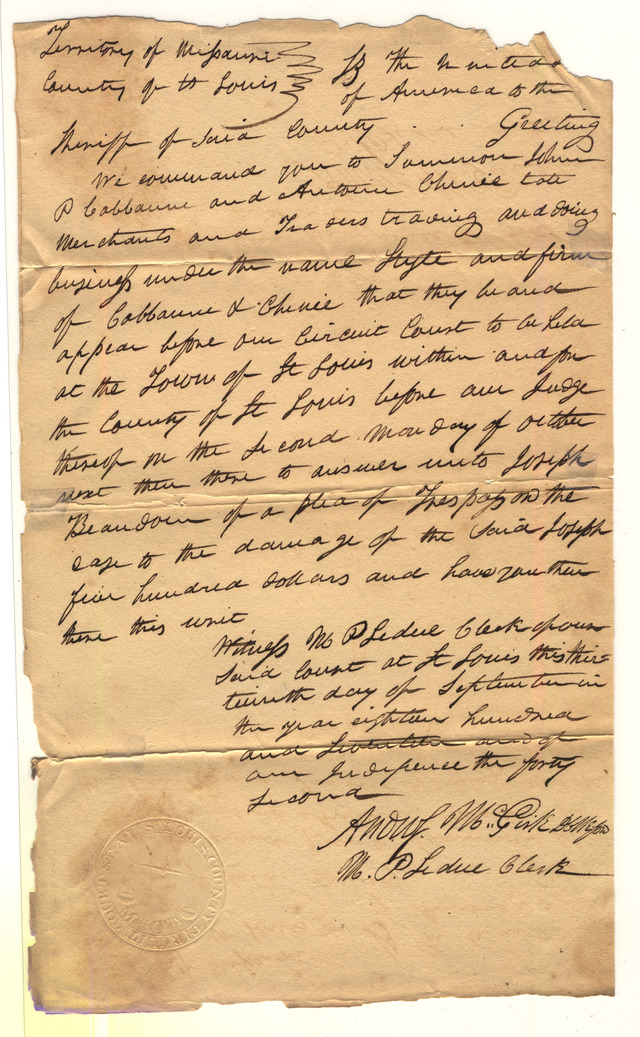 Territory of Missouri
County of St Louis
The United
of America to the
Sheriff of Said County Greeting
We command you to Summon John
P Cabbanne and Antoine Chenie late
Merchants and Traders trading and doing
business under the name Style and firm
of Cabbanne & Chenie that they be and
appear before our Circuit Court to be held
at the Town of St Louis within and for
the County of St Louis before our Judge
thereof on the Second Monday of October
next then there to answer unto Joseph
Beaudoin of a plea of Trespass on the
case to the damage of the Said Joseph
five hundred dollars and have you then
there this writ
Witness M P Leduc Clerk of our
Said Court at St Louis this thir-
teenth day of September in
the year eighteen hundred
and Seventeen and of
our Indepence the forty
Second
Andw. McGirk
M. P. Leduc Clerk
ST LOUIS COUNTY CIRCUIT COURT SEAL